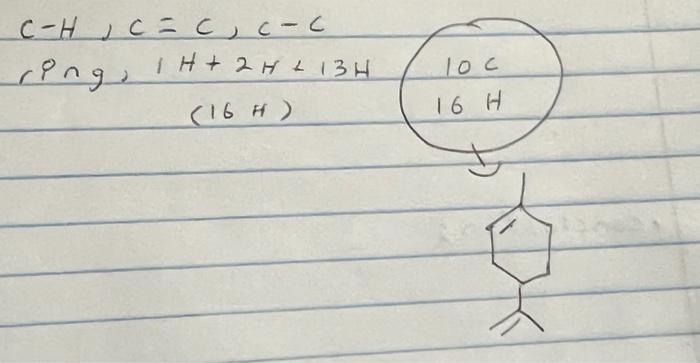 C-H, C=C, C-C
ring, 1H + 2H + 13H
(16 H)
10 C
16 H